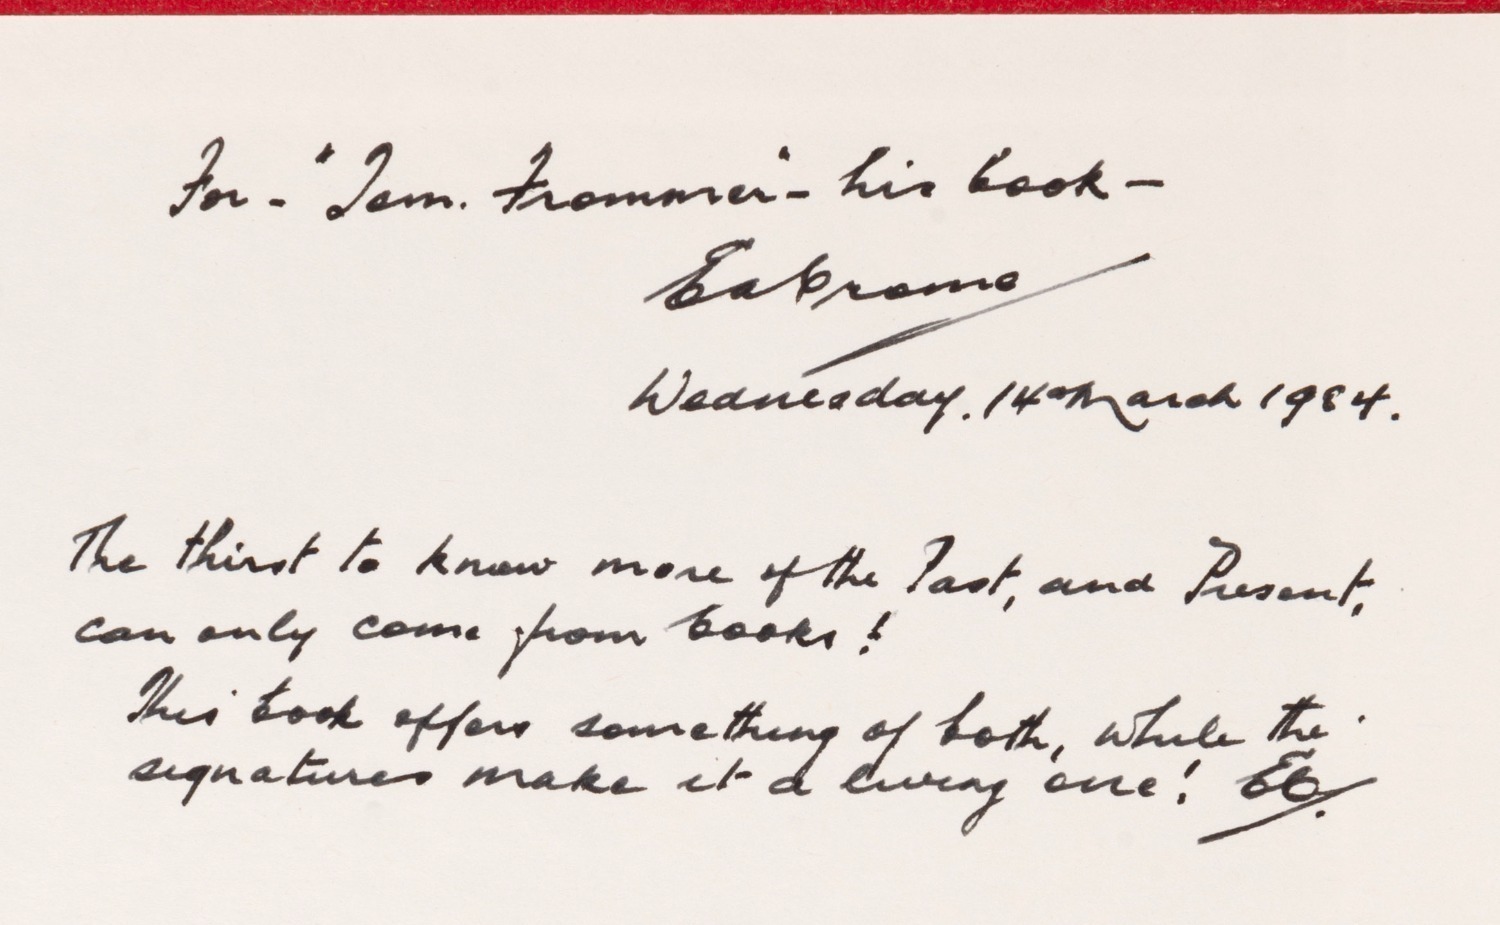 For - "Tom. Frommer" - his book -
Ed Crome
Wednesday. 14th March 1984.
The thirst to know more of the Past, and Present,
can only come from books!
This book offers something of both, while the
signatures make it a living one! EC.